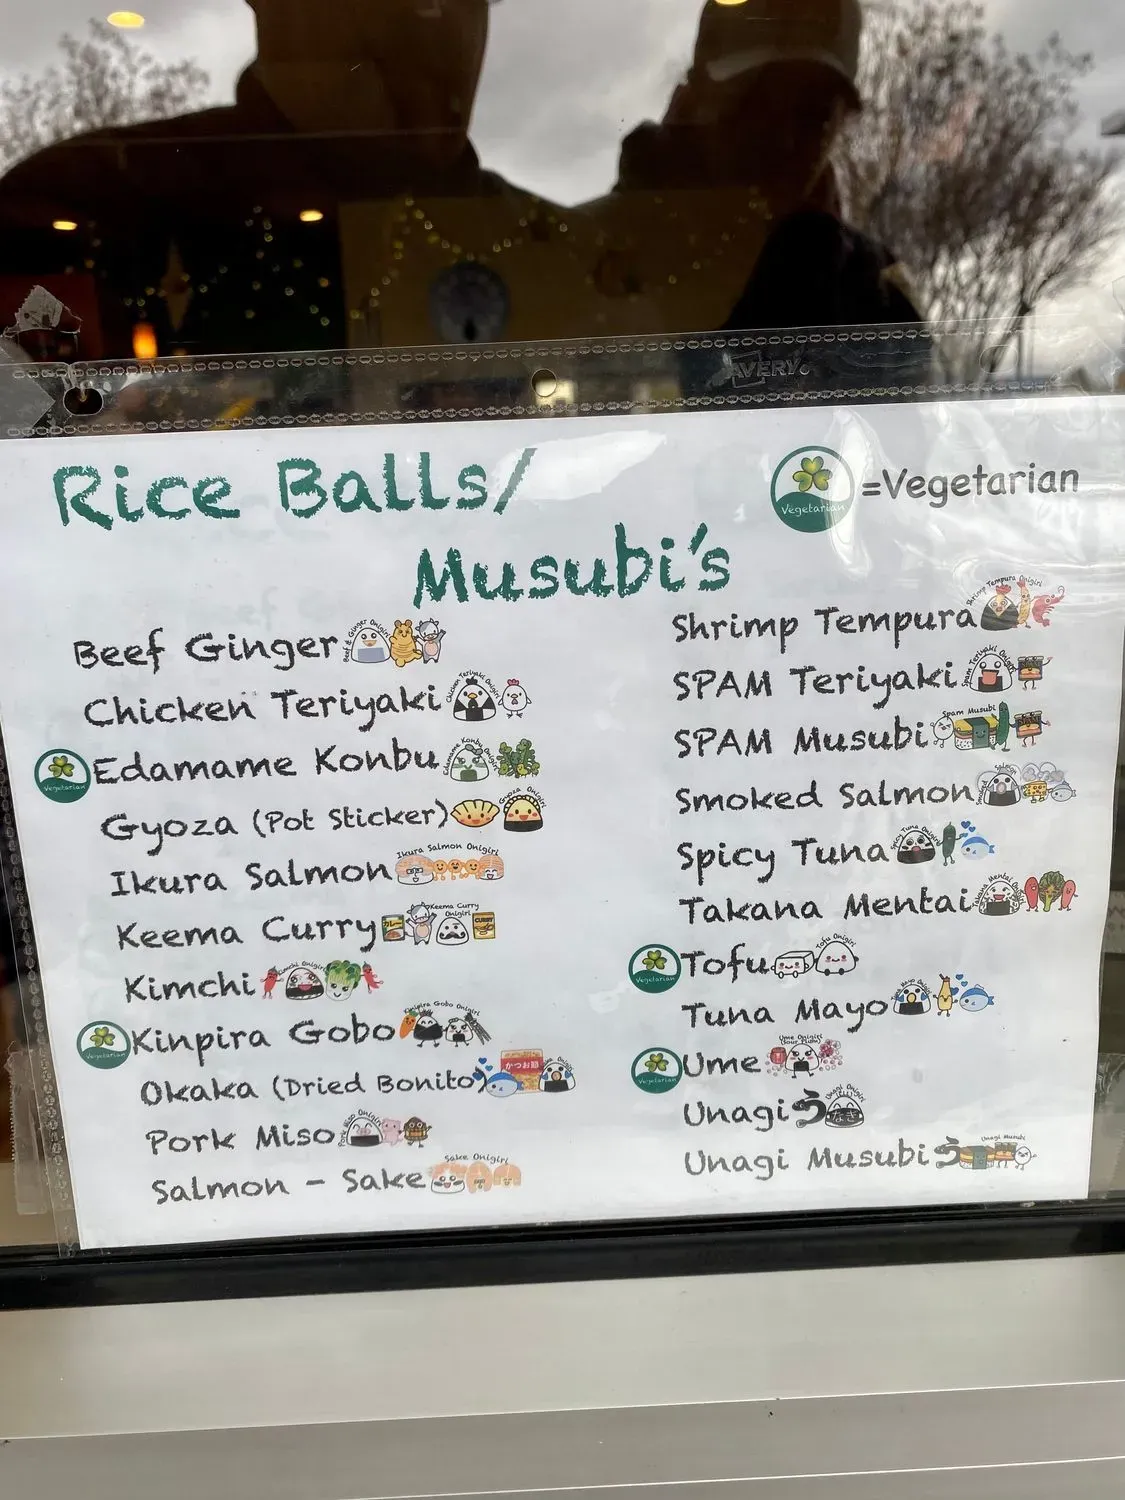 AVERY
Rice Balls/
Musubi's
Vegetarian
=Vegetarian
Beef Ginger
Chicken Teriyaki
Chicken Teriyaki Onigiri
Vegetarian
Edamame Konbu
Gyoza (Pot Sticker)
Gyoza Onigiri
Ikura Salmon
Ikura Salmon Onigiri
Keema Curry
Keema Curry Onigiri
CURRY
Kimchi
Kimchi Onigiri
Vegetarian
Kinpira Gobo
Kinpira Gobo Onigiri
Okaka (Dried Bonito)
かつお節
Pork Miso
Pork Miso Onigiri
Salmon - Sake
Sake Onigiri
Shrimp Tempura
Shrimp Tempura Onigiri
SPAM Teriyaki
Spam Teriyaki Onigiri
SPAM Musubi
Spam Musubi
Smoked Salmon
Spicy Tuna
Spicy Tuna Onigiri
Takana Mentai
Vegetarian
Tofu
Tofu Onigiri
Tuna Mayo
Tuna Mayo Onigiri
Vegetarian
Ume
Ume Onigiri
(Sour Plum)
Unagi う
Unagi Onigiri
Unagi Musubi う
Unagi Musubi